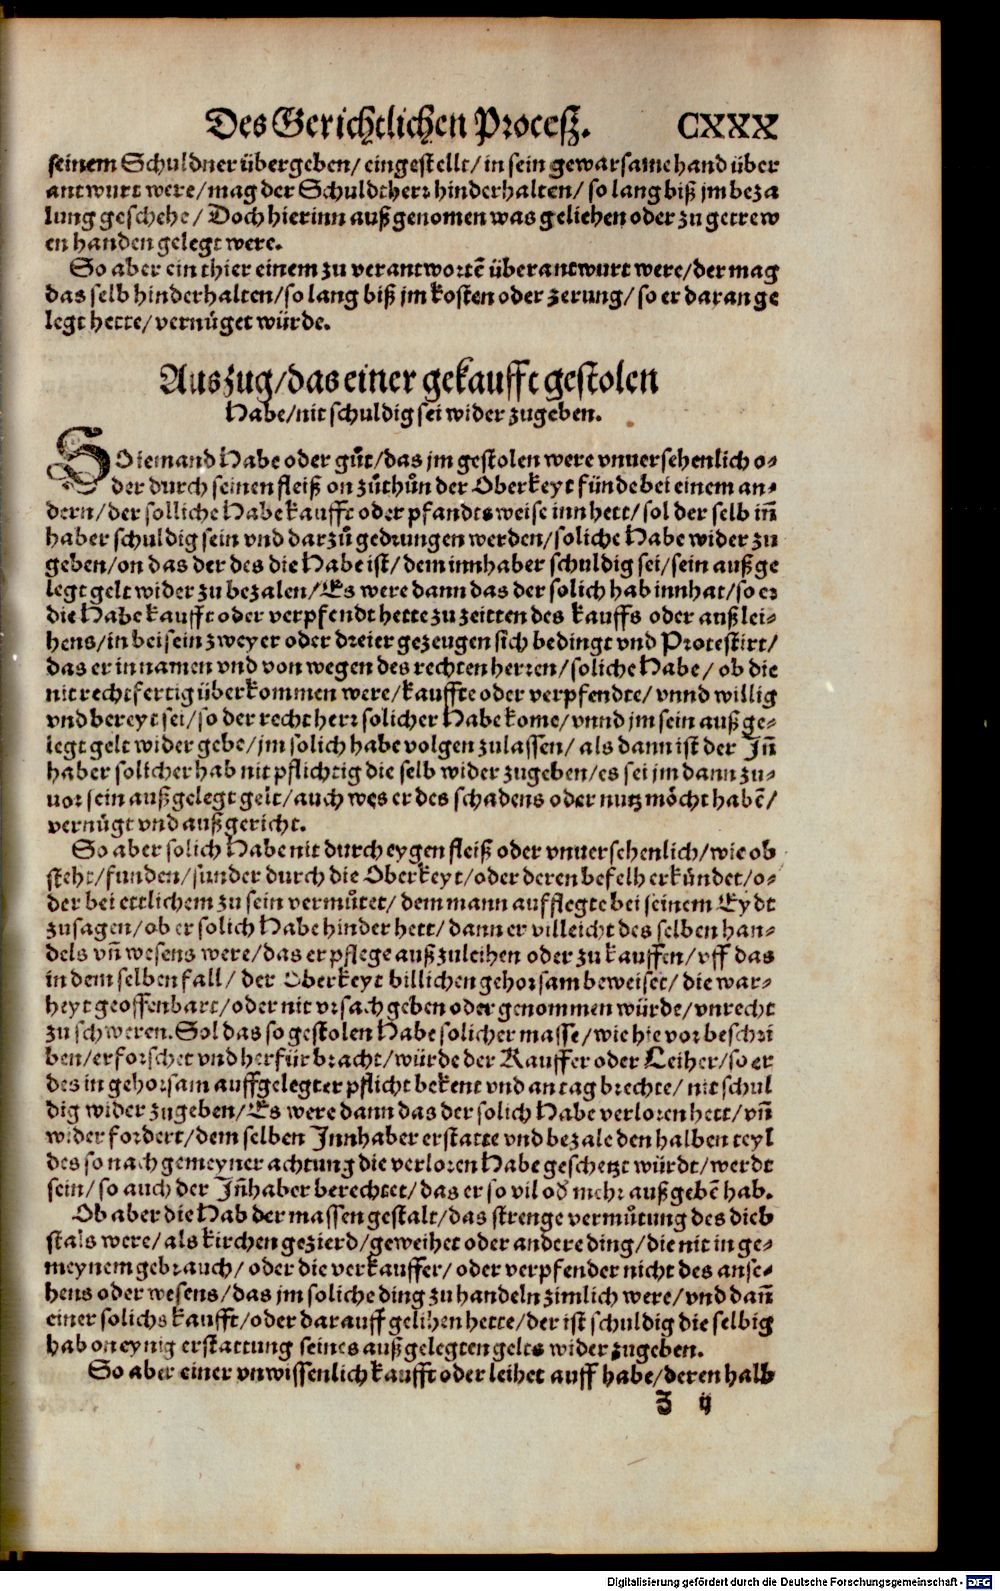 Des Gerichtlichen Proceß. CXXX
seinem Schuldner übergeben/ eingestellt/ in sein gewarsame hand über
antwurt were/ mag der Schuldtherr hinderhalten/ so lang biß jm beza
lung geschehe/ Doch hierinn außgenomen was geliehen oder zu getrew
en handen gelegt were.
So aber ein thier einem zu verantwortẽ überantwurt were/ der mag
das selb hinderhalten/ so lang biß jm kosten oder zerung/ so er daran ge
legt hette/ vernüget würde.
Auszug/ das einer gekaufft gestolen
Habe/ nit schuldig sei wider zugeben.
SO iemand Habe oder gůt/ das jm gestolen were vnuersehenlich o-
der durch seinen fleiß on zůthůn der Oberkeyt fünde bei einem an-
dern/ der solliche Habe kaufft oder pfandtsweise innhett/ sol der selb iñ
haber schuldig sein vnd darzů gedrungen werden/ soliche Habe wider zu
geben/ on das der des die Habe ist/ dem innhaber schuldig sei/ sein außge
legt gelt wider zu bezalen/ Es were dann das der solich hab innhat/ so er
die Habe kaufft oder verpfendt hette zu zeitten des kauffs oder außlei-
hens/ in beisein zweyer oder dreier gezeugen sich bedingt vnd Protestirt/
das er in namen vnd von wegen des rechten herren/ soliche Habe/ ob die
nit rechtfertig überkommen were/ kauffte oder verpfendte/ vnnd willig
vnd bereyt sei/ so der recht herr solicher Habe kome/ vnnd jm sein außge-
legt gelt wider gebe/ jm solich habe volgen zulassen/ als dann ist der Iñ
haber solicher hab nit pflichtig die selb wider zugeben/ es sei jm dann zu-
uor sein außgelegt gelt/ auch wes er des schadens oder nutz möcht habẽ/
vernügt vnd außgericht.
So aber solich Habe nit durch eygen fleiß oder vnuersehenlich/ wie ob
steht/ funden/ sunder durch die Oberkeyt/ oder deren befelh erkündet/ o-
der bei ettlichem zu sein vermůtet/ dem mann aufflegte bei seinem Eydt
zusagen/ ob er solich Habe hinder hett/ dann er villeicht des selben han-
dels vñ wesens were/ das er pflege außzuleihen oder zu kauffen/ vff das
in dem selben fall/ der Oberkeyt billichen gehorsam beweiset/ die war-
heyt geoffenbart/ oder nit vrsach geben oder genommen würde/ vnrecht
zu schweren. Sol das so gestolen Habe solicher masse/ wie hie vor beschri
ben/ erforschet vnd herfür bracht/ würde der Kauffer oder Leiher/ so er
des in gehorsam auffgelegter pflicht bekent vnd an tag brechte/ nit schul
dig wider zugeben/ Es were dann das der solich Habe verloren hett/ vñ
wider fordert/ dem selben Innhaber erstatte vnd bezale den halben teyl
des so nach gemeyner achtung die verloren Habe geschetzt würdt/ werdt
sein/ so auch der Iñhaber berechtet/ das er so vil oď mehr außgebẽ hab.
Ob aber die Hab der massen gestalt/ das strenge vermůtung des dieb
stals were/ als kirchen gezierd/ geweihet oder andere ding/ die nit in ge-
meynem gebrauch/ oder die verkauffer/ oder verpfender nicht des anse-
hens oder wesens/ das jm soliche ding zu handeln zimlich were/ vnd dañ
einer solichs kaufft/ oder darauff gelihen hette/ der ist schuldig die selbig
hab on eynig erstattung seines außgelegten gelts wider zugeben.
So aber einer vnwissenlich kaufft oder leihet auff habe/ deren halb
Z ij
Digitalisierung gefördert durch die Deutsche Forschungsgemeinschaft - DFG